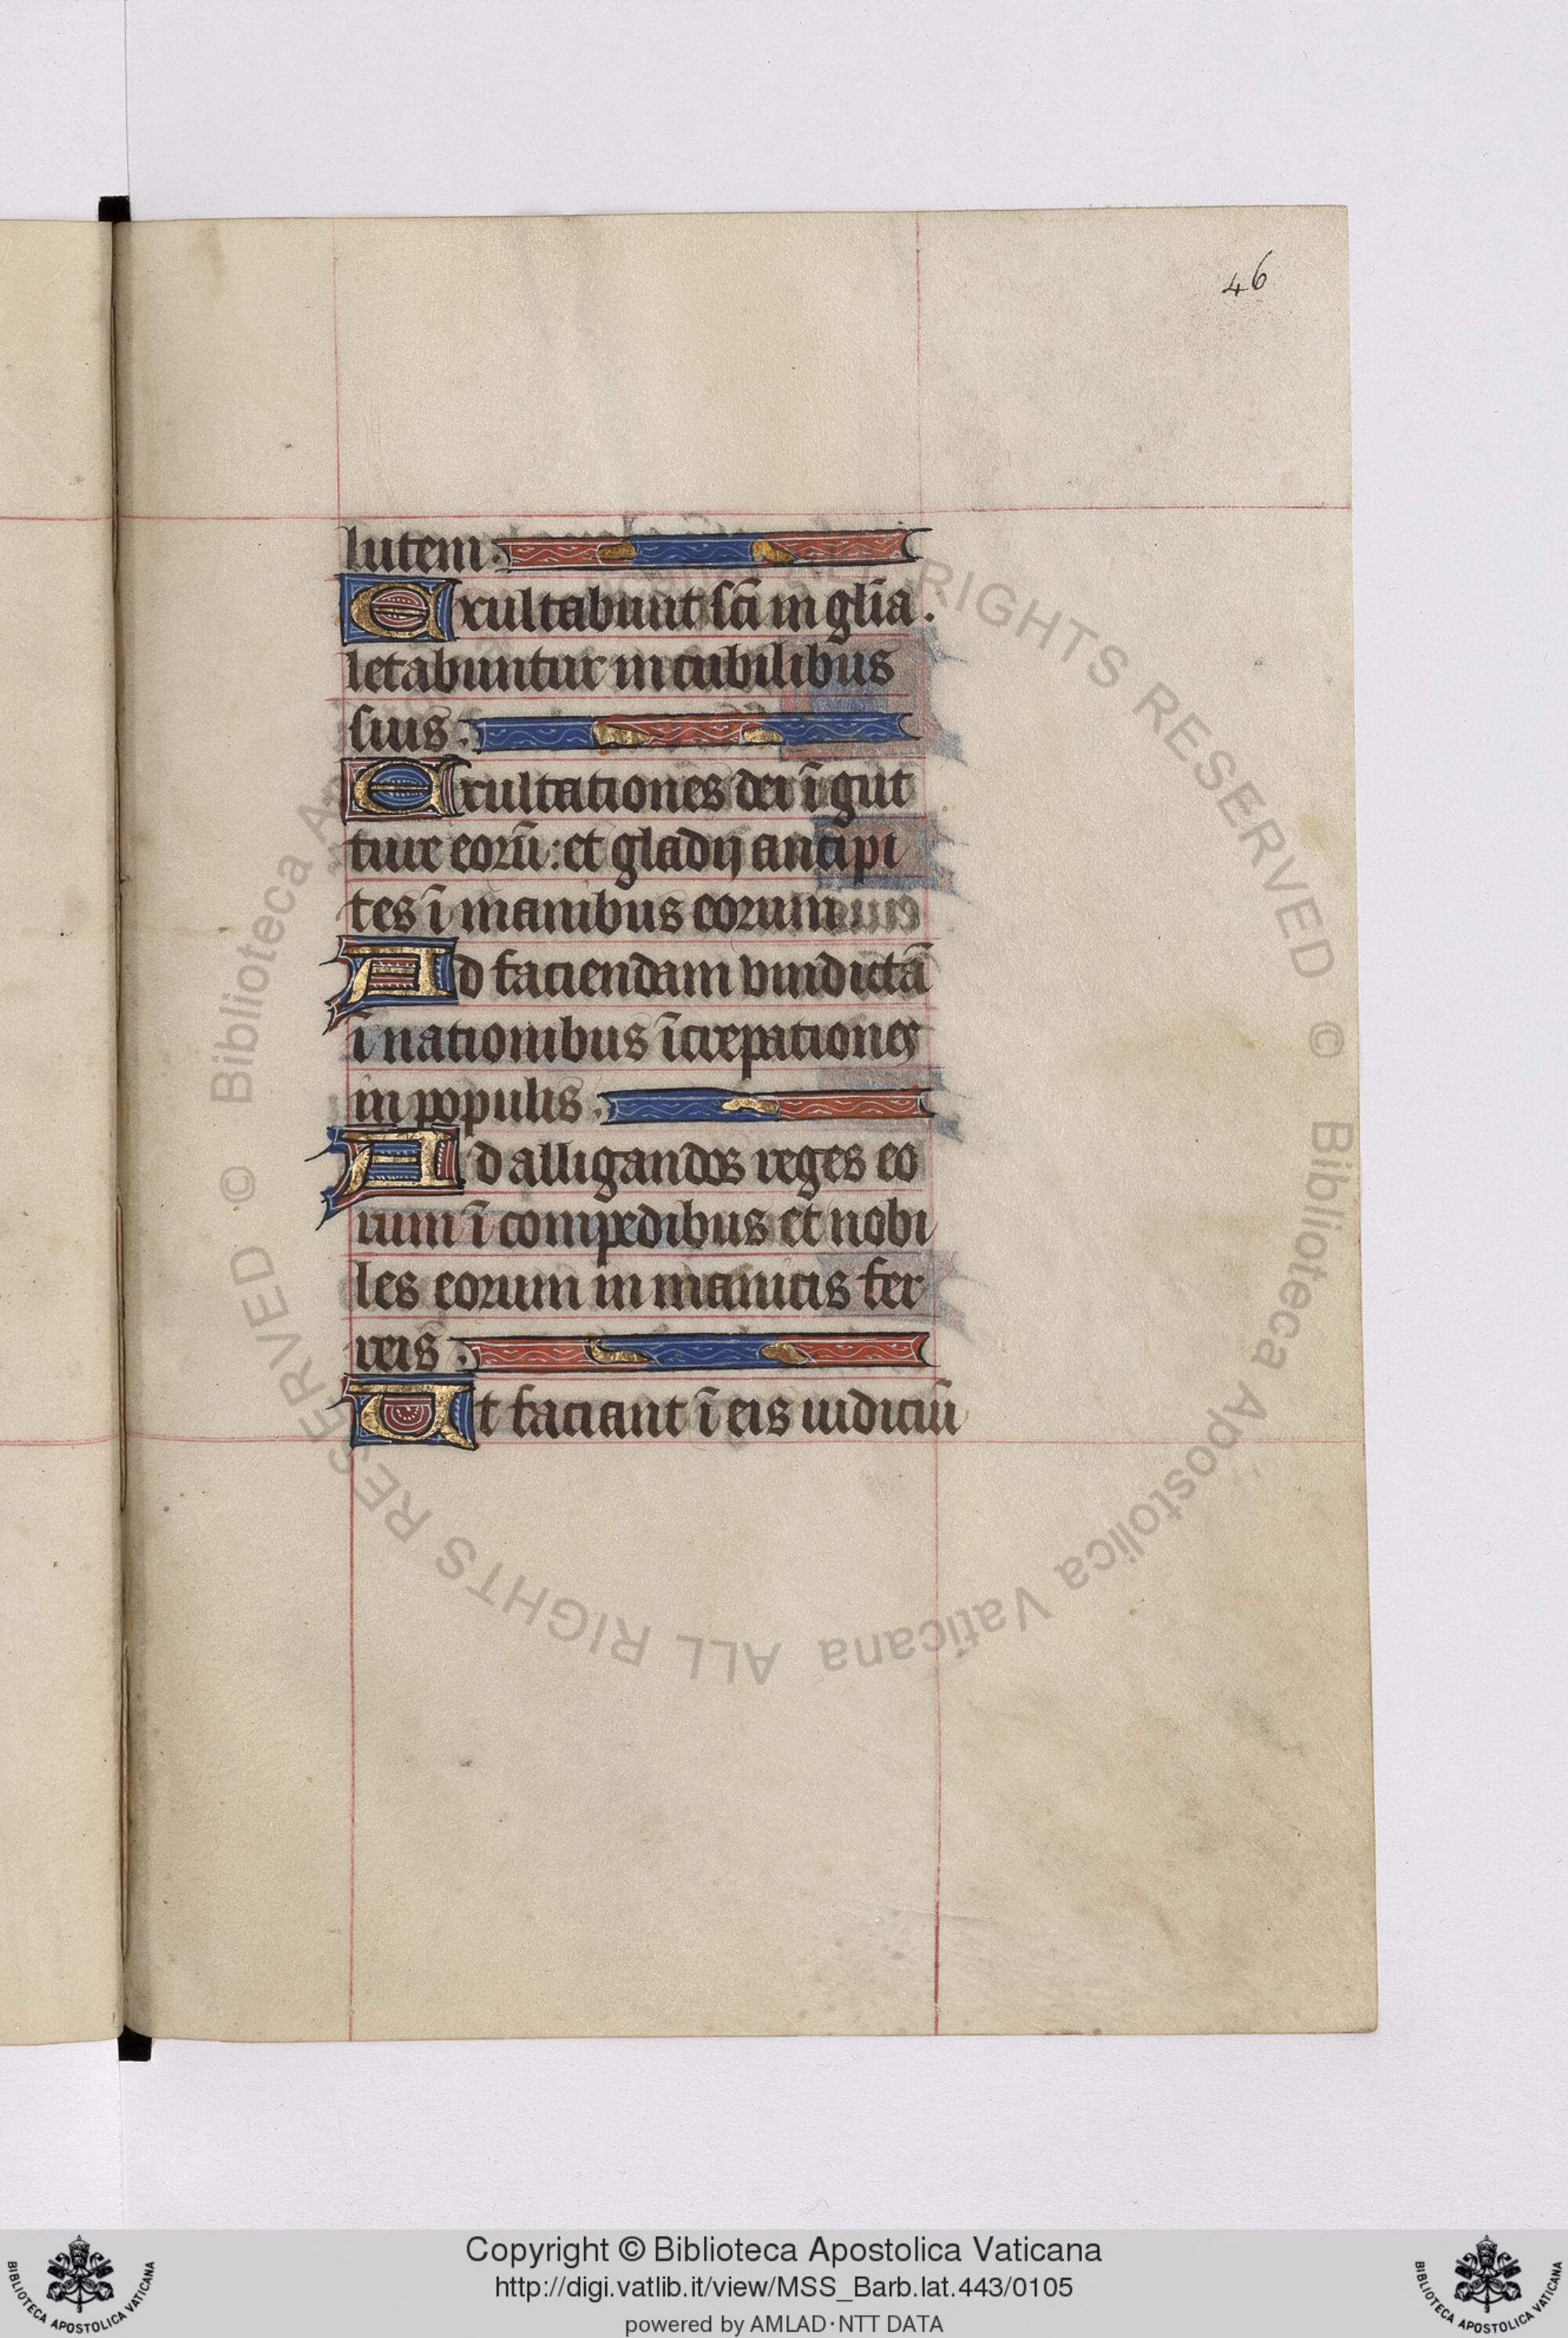 46
lutem.
Exultabunt sc̄i in glīa.
letabuntur in cubilibus
suis.
Exultationes dei ī gut
ture eorū: et gladij ancipi
tes ī manibus eorum
Ad faciendam vindictā
ī nationibus īcrepationes
in populis.
Ad alligandos reges eo
rum ī compedibus et nobi
les eorum in manicis fer
reis.
Ut faciant ī eis iudiciū
© Biblioteca Apostolica Vaticana ALL RIGHTS RESERVED © Biblioteca Apostolica Vaticana ALL RIGHTS RESERVED
Copyright © Biblioteca Apostolica Vaticana
http://digi.vatlib.it/view/MSS_Barb.lat.443/0105
powered by AMLAD·NTT DATA
BIBLIOTECA APOSTOLICA VATICANA
BIBLIOTECA APOSTOLICA VATICANA